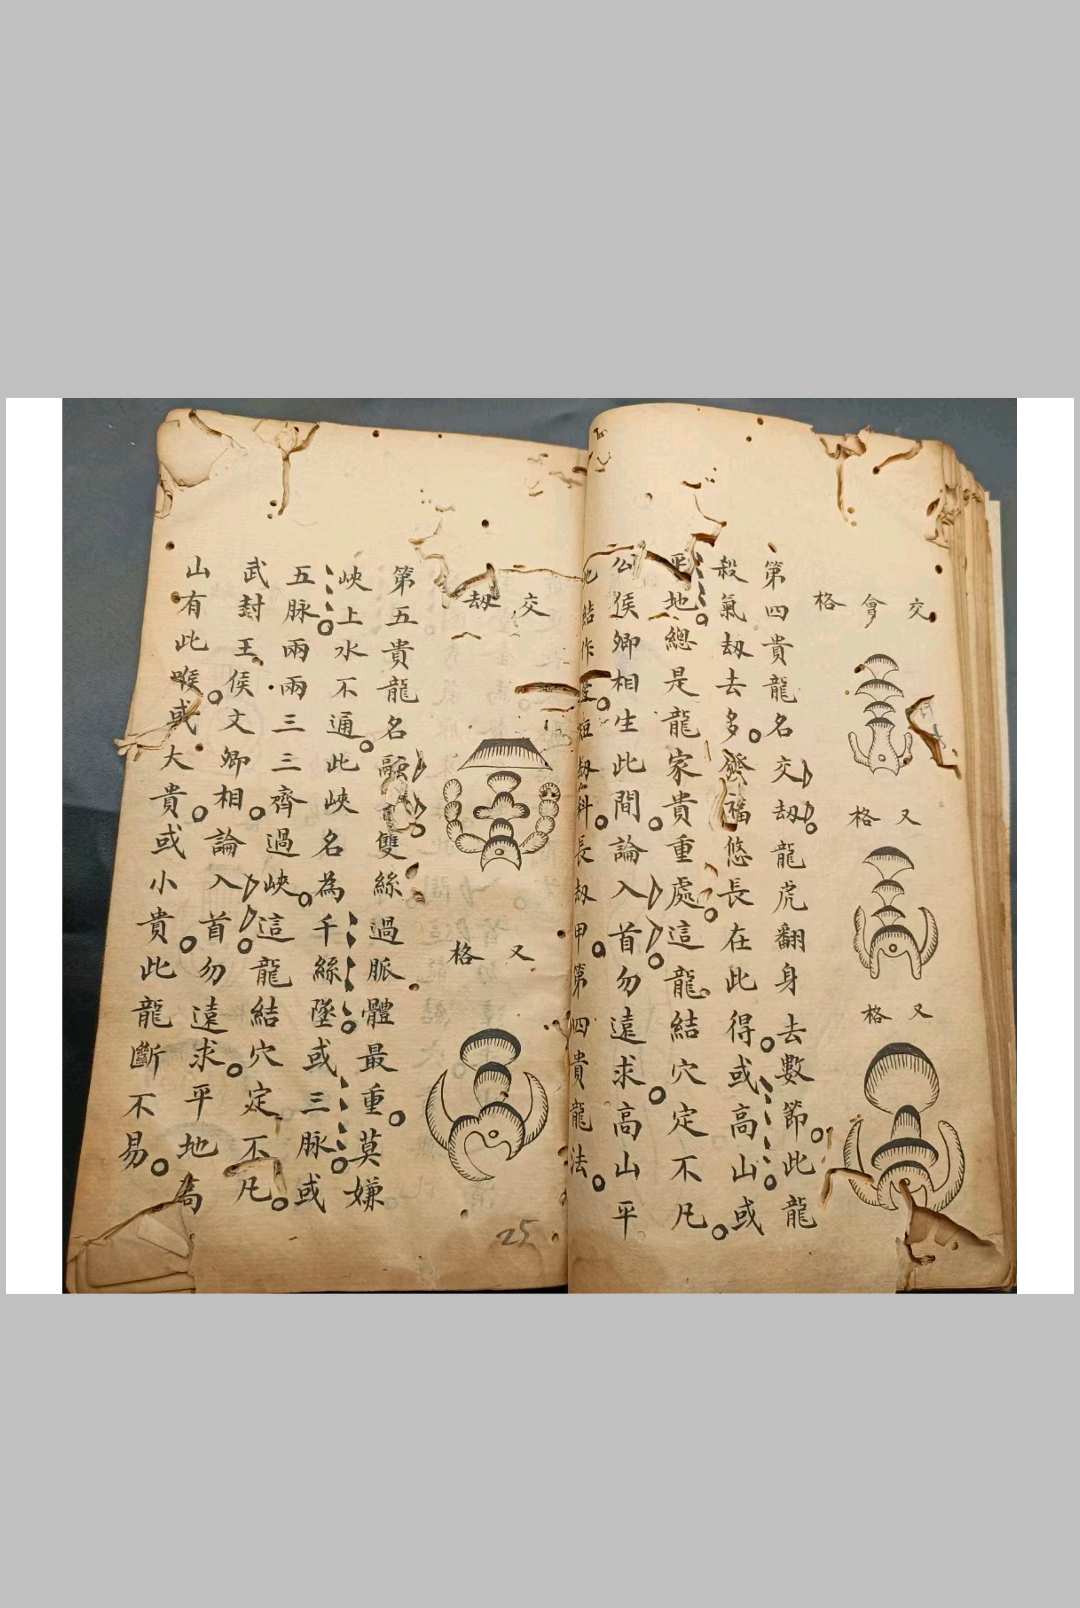 交會格
又格
又格
第四貴龍名交刼龍虎翻身去數節此龍
殺氣刼去多發福悠長在此得或高山或
平地總是龍家貴重處這龍結穴定不凡
公侯卿相生此間論入首勿遠求高山平
地結作 短刼科長刼甲第四貴龍法
交刼
又格
第五貴龍名融 雙絲過脈體最重莫嫌
峽上水不通此峽名為千絲墜或三脉或
五脉兩兩三三齊過峽這龍結穴定不凡
武封王侯文卿相論入首勿遠求平地高
山有此喉或大貴或小貴此龍斷不易
25